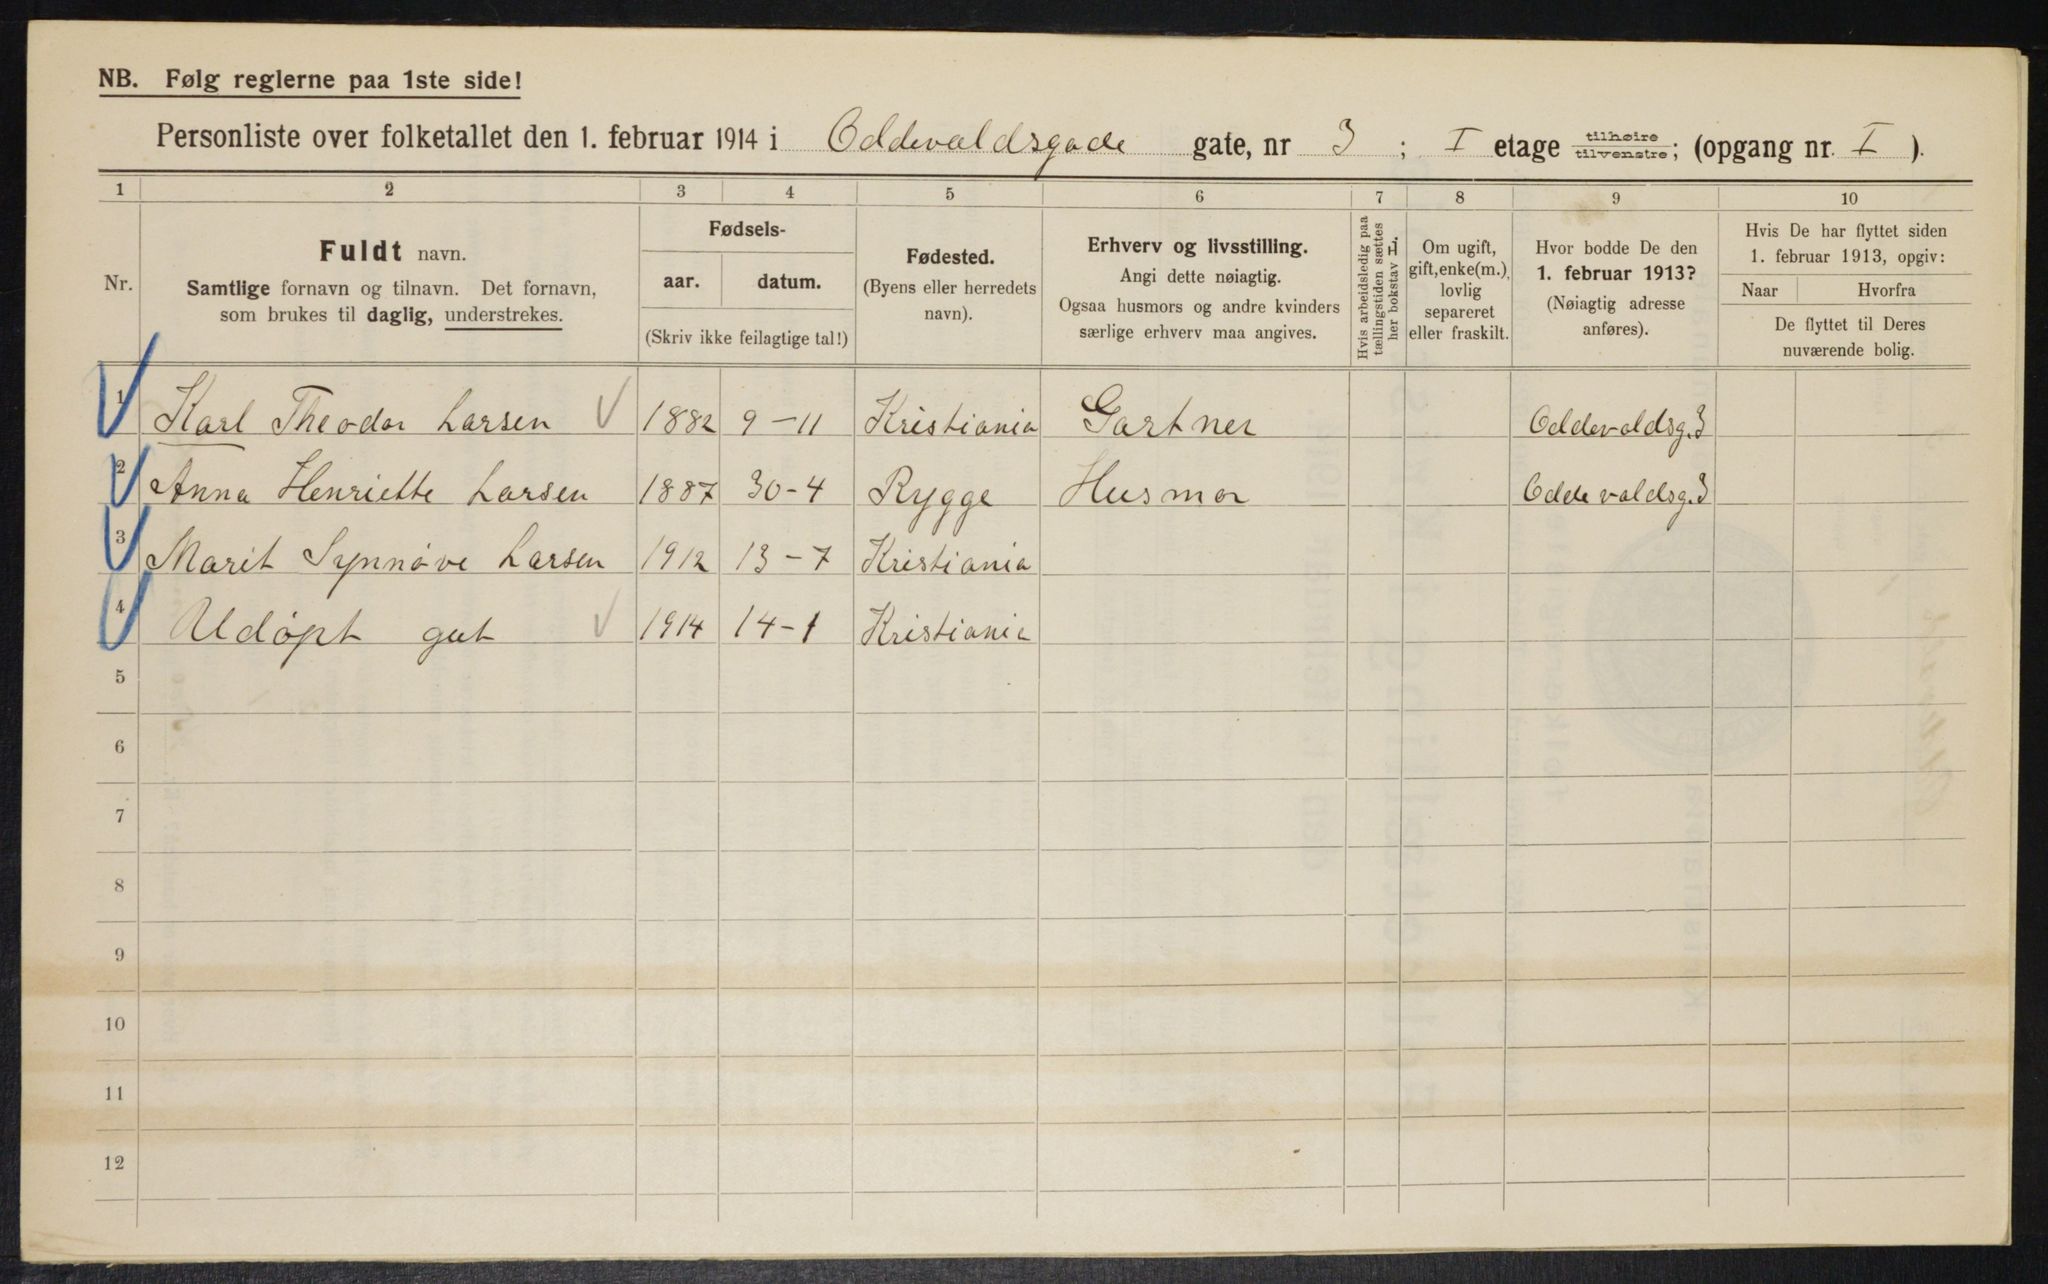 NB. Følg reglerne paa 1ste side!
Personliste over folketallet den 1. februar 1914 i Oddevaldsgade gate, nr 3; I etage tilhøire / tilvenstre; (opgang nr. I).
1 2 3 4 5 6 7 8 9 10
Nr.
Fuldt navn.
Samtlige fornavn og tilnavn. Det fornavn,
som brukes til daglig, understrekes.
Fødsels-
aar. datum.
(Skriv ikke feilagtige tal!)
Fødested.
(Byens eller herredets
navn).
Erhverv og livsstilling.
Angi dette nøiagtig.
Ogsaa husmors og andre kvinders
særlige erhverv maa angives.
Hvis arbeidsledig paa
tællingstiden sættes
her bokstav L.
Om ugift,
gift, enke(m.),
lovlig
separeret
eller fraskilt.
Hvor bodde De den
1. februar 1913?
(Nøiagtig adresse
anføres).
Hvis De har flyttet siden
1. februar 1913, opgiv:
Naar Hvorfra
De flyttet til Deres
nuværende bolig.
1 Karl Theodor Larsen 1882 9-11 Kristiania Gartner Oddevaldsg. 3
2 Anna Henriette Larsen 1887 30-4 Rygge Husmor Oddevaldsg. 3
3 Marit Synnøve Larsen 1912 13-7 Kristiania
4 Udøpt gut 1914 14-1 Kristiania
5
6
7
8
9
10
11
12